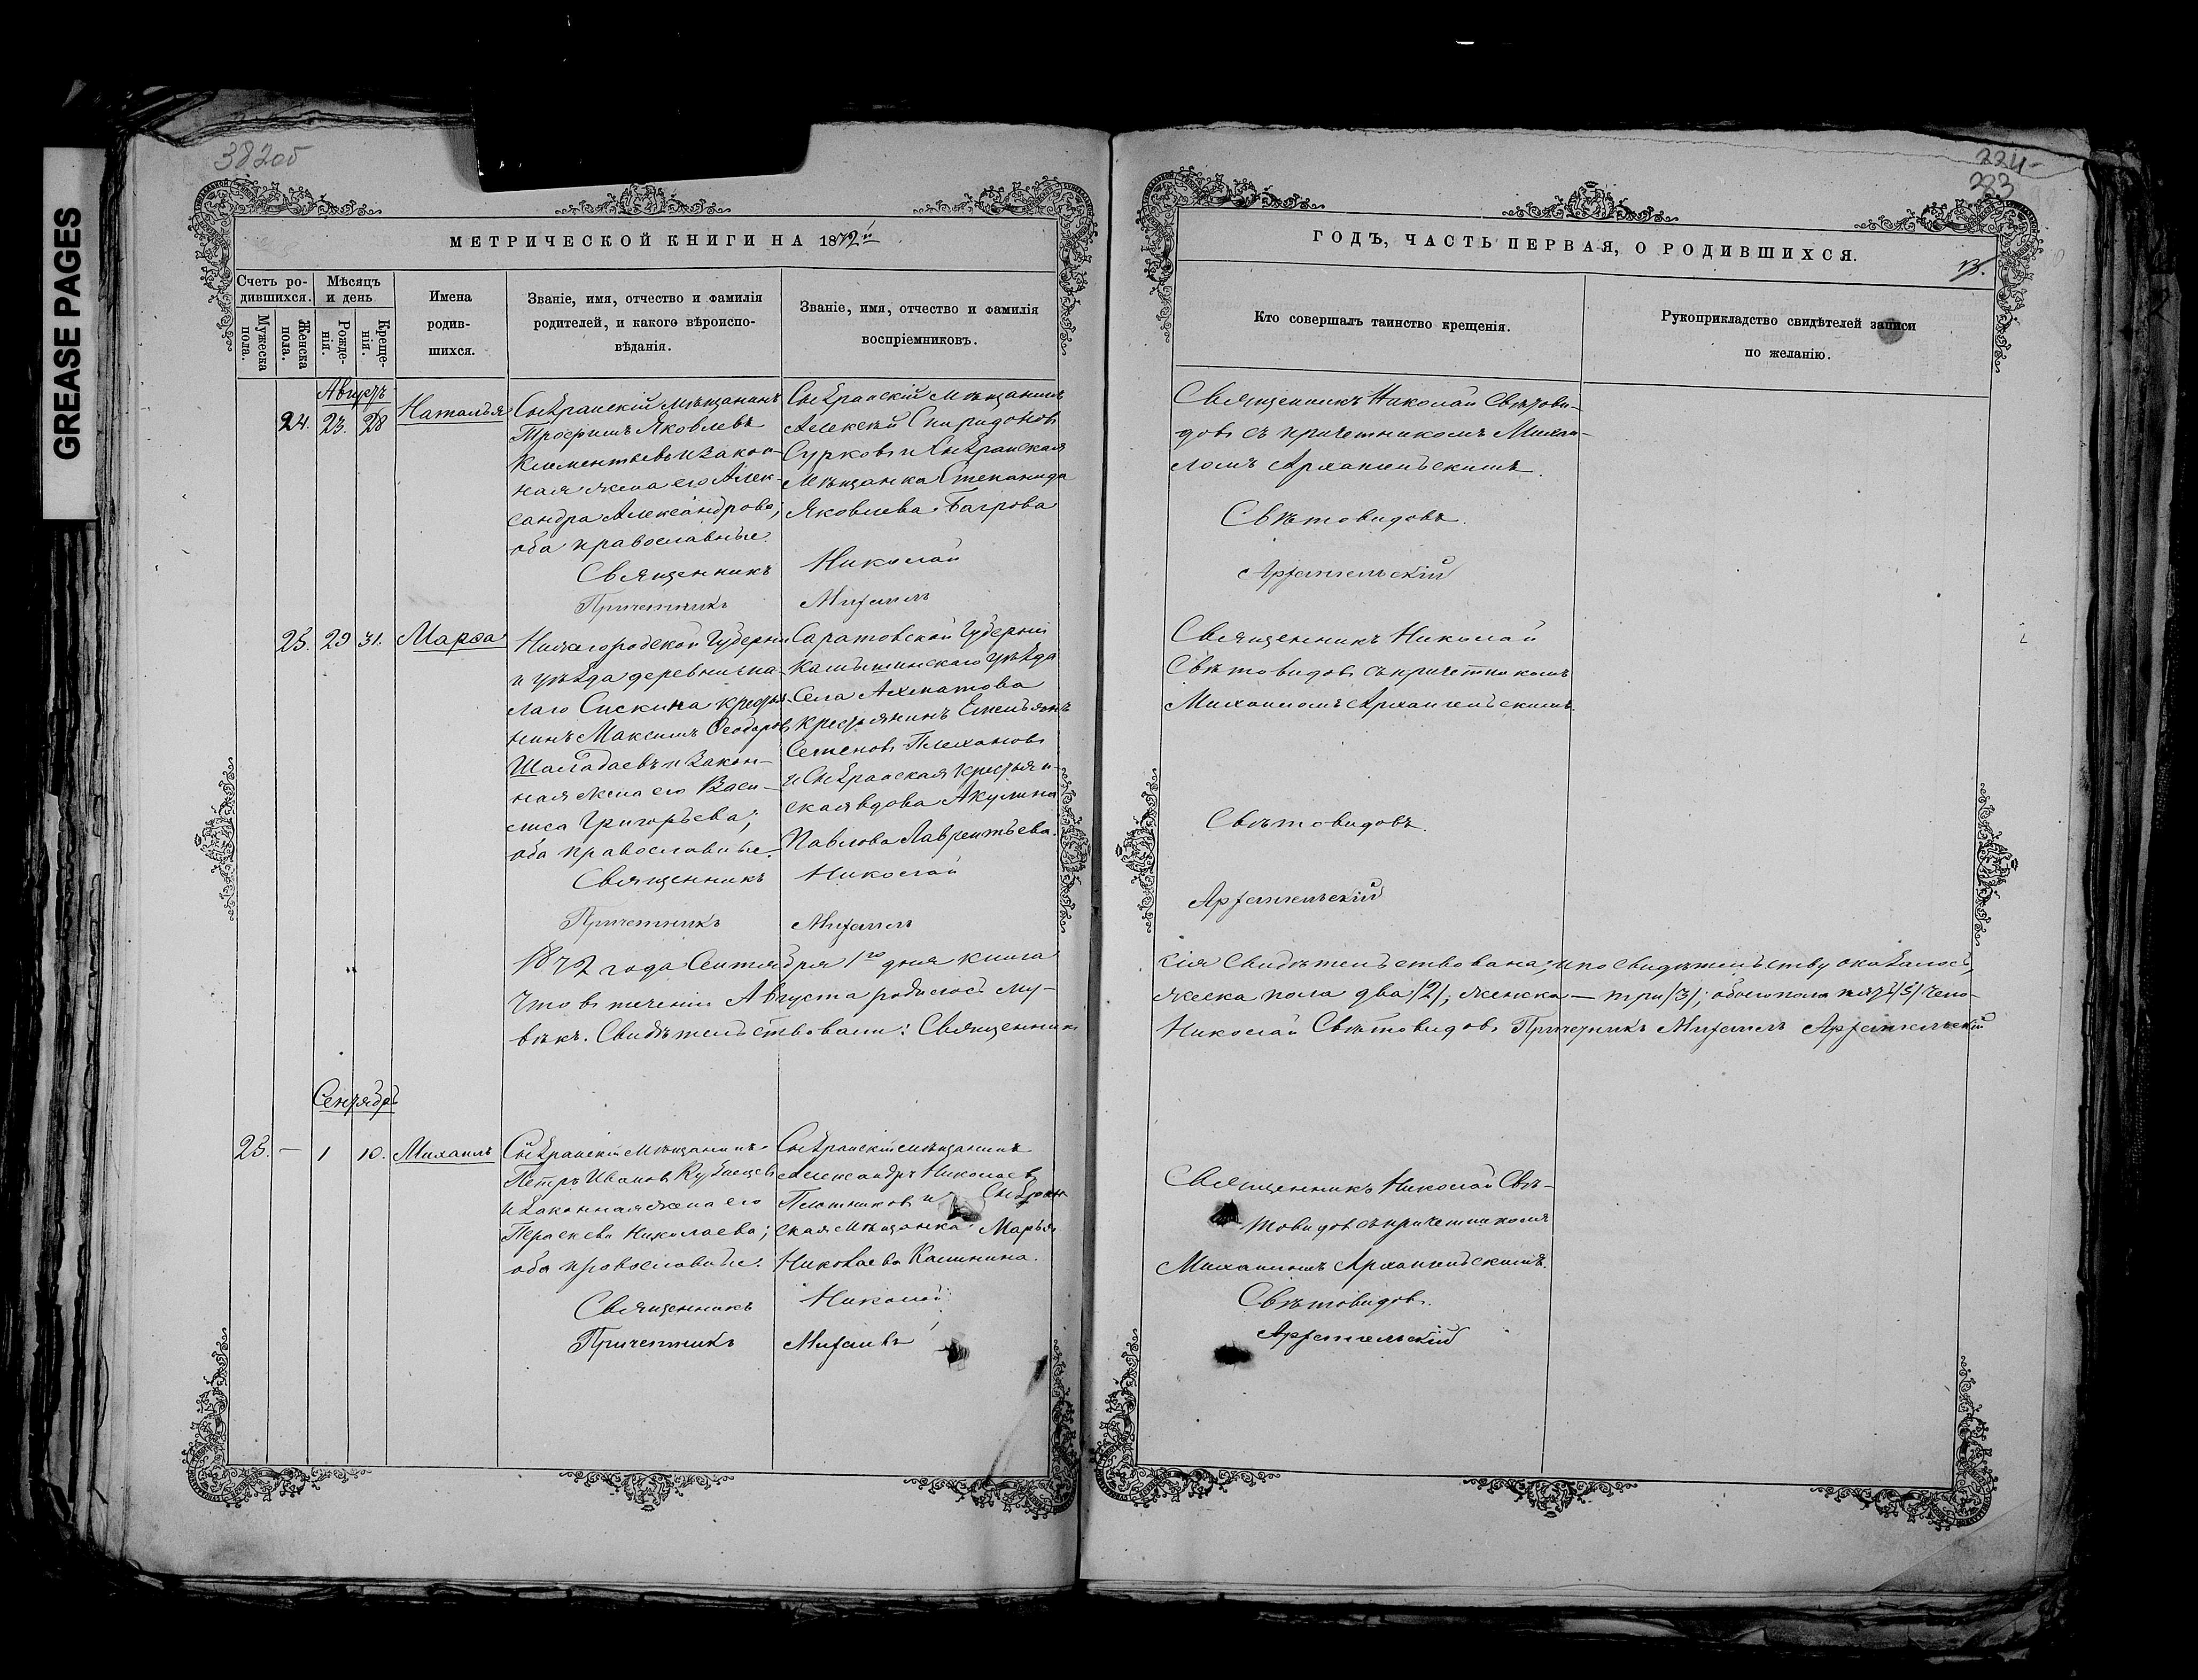 GREASE PAGES
382об
МЕТРИЧЕСКОЙ КНИГИ НА 1872й
Счетъ ро-
дившихся.
Мѣсяцъ
и день
Мужеска
пола.
Женска
пола.
Рожде-
нія.
Креще-
нія.
Имена
родив-
шихся.
Званіе, имя, отчество и фамилія
родителей, и какого вѣроиспо-
вѣданія.
Званіе, имя, отчество и фамилія
воспріемниковъ.
Августъ
24. 23. 28 Наталья
Сызранскій мѣщанинъ
Трофимъ Яковлевъ
Клементьевъ и закон-
ная жена его Алек-
сандра Александрова;
оба православные.
Священникъ
Причетникъ
Сызранскій мѣщанинъ
Алексѣй Спиридоновъ
Сурковъ и Сызранская
мѣщанка Степанида
Яковлева Багрова
Николай
Михаилъ
25. 29 31. Марѳа
Нижегородской Губерніи
и уѣзда деревни ма-
лаго Сискина крестья-
нинъ Максимъ Ѳеодоровъ
Шалабаевъ и закон-
ная жена его Васи-
лиса Григорьева;
оба православные.
Священникъ
Причетникъ
Саратовской Губерніи
Камышинскаго уѣзда
Села Ахматова
крестьянинъ Емельянъ
Семеновъ Плехановъ
и Сызранская крестьян-
ская вдова Акулина
Павлова Лаврентьева.
Николай
Михаилъ
1872 года Сентября 1го дня книга
что въ теченіи Августа родилось му-
вѣкъ. Свидѣтельствовали: Священникъ
Сентябрь
23. — 1 10. Михаилъ
Сызранскій мѣщанинъ
Петръ Ивановъ Кузнецовъ
и законная жена его
Параскева Николаева;
оба православные.
Священникъ
Причетникъ
Сызранскій мѣщанинъ
Александръ Николаевъ
Плотниковъ и Сызран-
ская мѣщанка Марья
Николаева Калинина.
Николай
Михаилъ
224
383
ГОДЪ, ЧАСТЬ ПЕРВАЯ, О РОДИВШИХСЯ.
13.
Кто совершалъ таинство крещенія.
Рукоприкладство свидѣтелей записи
по желанію.
Священникъ Николай Свѣтови-
довъ съ причетникомъ Михаи-
ломъ Архангельскимъ.
Свѣтовидовъ.
Архангельскій
Священникъ Николай
Свѣтовидовъ съ причетникомъ
Михаиломъ Архангельскимъ.
Свѣтовидовъ.
Архангельскій
сія свидѣтельствована; и по свидѣтельству оказалось,
жеска пола два /2/, женска — три /3/; обоего пола пять /5/ чело-
Николай Свѣтовидовъ Причетникъ Михаилъ Архангельскій
Священникъ Николай Свѣ-
товидовъ съ причетникомъ
Михаиломъ Архангельскимъ.
Свѣтовидовъ.
Архангельскій